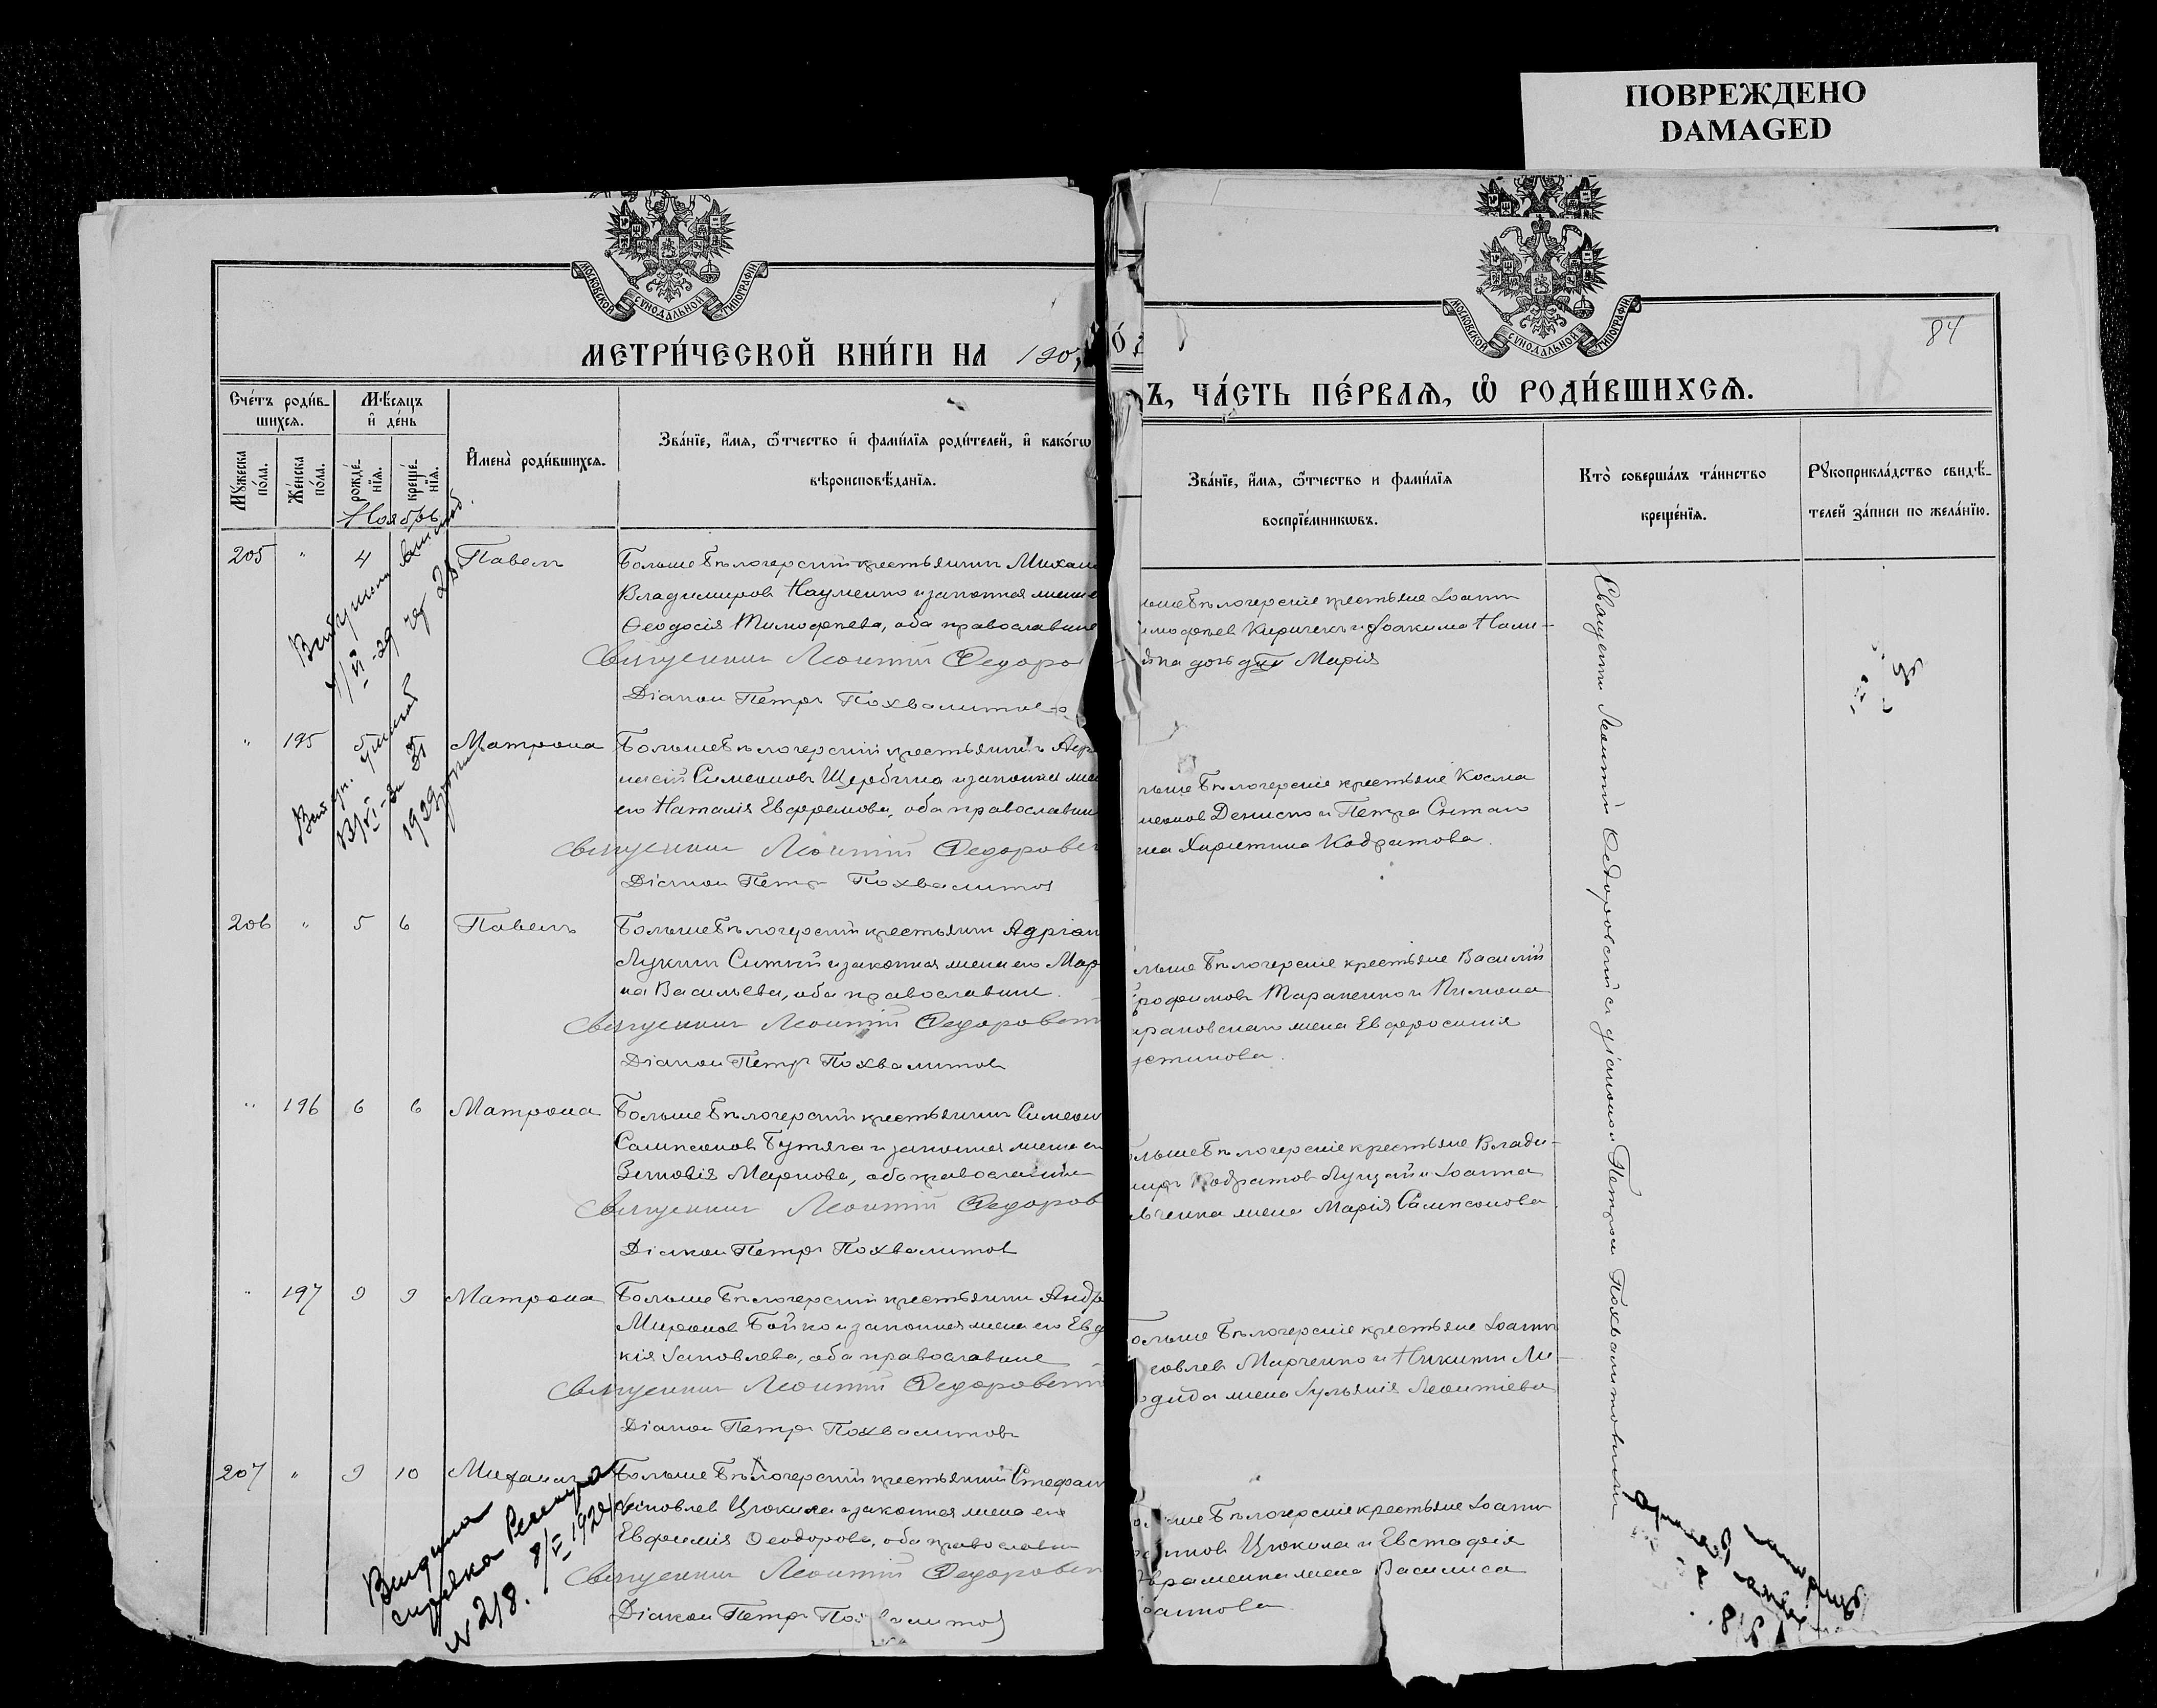 ПОВРЕЖДЕНО
DAMAGED
МОСКОВСКОЙ СѴНОДАЛЬНОЙ ТИПОГРАФІИ
МОСКОВСКОЙ СѴНОДАЛЬНОЙ ТИПОГРАФІИ
84
МЕТРИ́ЧЕСКОЙ КНИ́ГИ НА 190
Ъ, ЧА́СТЬ ПЕ́РВАѦ, Ѽ РОДИ́ВШИХСѦ.
Сче́тъ роди́в-
шихсѧ.
Мѣ́сяцъ
и҆ де́нь
Мꙋ́жеска
по́ла.
Же́нска
по́ла.
рожде́-
нїѧ.
креще́-
нїѧ.
И҆мена̀ роди́вшихсѧ.
Зва́нїе, и҆́мѧ, ѻ҆́тчество и҆ фами́лїѧ роди́телей, и҆ како́гѡ
вѣроисповѣ́данїѧ.
Зва́нїе, и҆́мѧ, ѻ҆́тчество и фами́лїѧ
воспрїе́мникѡвъ.
Кто̀ соверша́лъ та́инство
креще́нїѧ.
Рꙋкоприкла́дство свидѣ́-
телей за́писи по жела́нїю.
Ноябрь
205 " 4 Павелъ Больше Бѣлозерскій крестьянинъ Михаи
Владимировъ Науменко и законная жена е
Ѳеодосія Тимоѳеева, оба православные
Священникъ Леонтій Ѳедоро
Діаконъ Петръ Похвалитов
ьше Бѣлозерскіе крестьяне Іоаннъ
имоѳеев Киричекъ и Іоакима Нали-
дочь Марія
" 195 5 Матрона Больше Бѣлозерскій крестьянинъ
Симеоновъ Щербина и законная жен
его Наталія Евфремова, оба православны
Священникъ Леонтій Ѳедоровск
Діаконъ Петръ Похвалитов
ьше Бѣлозерскіе крестьяне Косма
меонов Дениско и Петра
на Харитина Кодратова.
206 " 5 6 Павелъ Больше Бѣлозерскій крестьянинъ Адріан
Лукинъ Ситній и законная жена его Мар
на Васильева, оба православные.
Священникъ Леонтій Ѳедоровск
Діаконъ Петръ Похвалитов
льше Бѣлозерскіе крестьяне Василій
рофимовъ Тараненко и Пимона
жена Евфросинія
устинова.
" 196 6 6 Матрона Больше Бѣлозерскій крестьянинъ Симеон
Сампсоновъ Бутяга и законная жена ег
Зиновія Маркова, оба православные
Священникъ Леонтій Ѳедоров
Діаконъ Петръ Похвалитов
ольше Бѣлозерскіе крестьяне Влади-
миръ Кодратов Луцкій и Іоанна
вченка жена Марія Сампсонова
" 197 9 9 Матрона Больше Бѣлозерскій крестьянинъ Андр
Миронов Бойко и законная жена его Евд
кія Іаковлева, оба православные
Священникъ Леонтій Ѳедоровск
Діаконъ Петръ Похвалитовъ
ольше Бѣлозерскіе крестьяне Іоаннъ
ковлев Марченко и Никиты Ли-
жена Іуліянія Леонтіева
207 " 9 10 Михаилъ Больше Бѣлозерскій крестьянинъ Стефан
Іаковлев Цюкила и законная жена его
Евфимія Ѳеодорова, оба православны
Священникъ Леонтій Ѳедоровск
Діаконъ Петръ Похвалитов
ше Бѣлозерскіе крестьяне Іоаннъ
Цюкила и Евстафія
враменка жена Василиса
Іоаннова
Священникъ Леонтій Ѳедоровскій съ діакономъ Петромъ Похвалитовымъ
Видана
справка
№ 218. 8/VI 1929